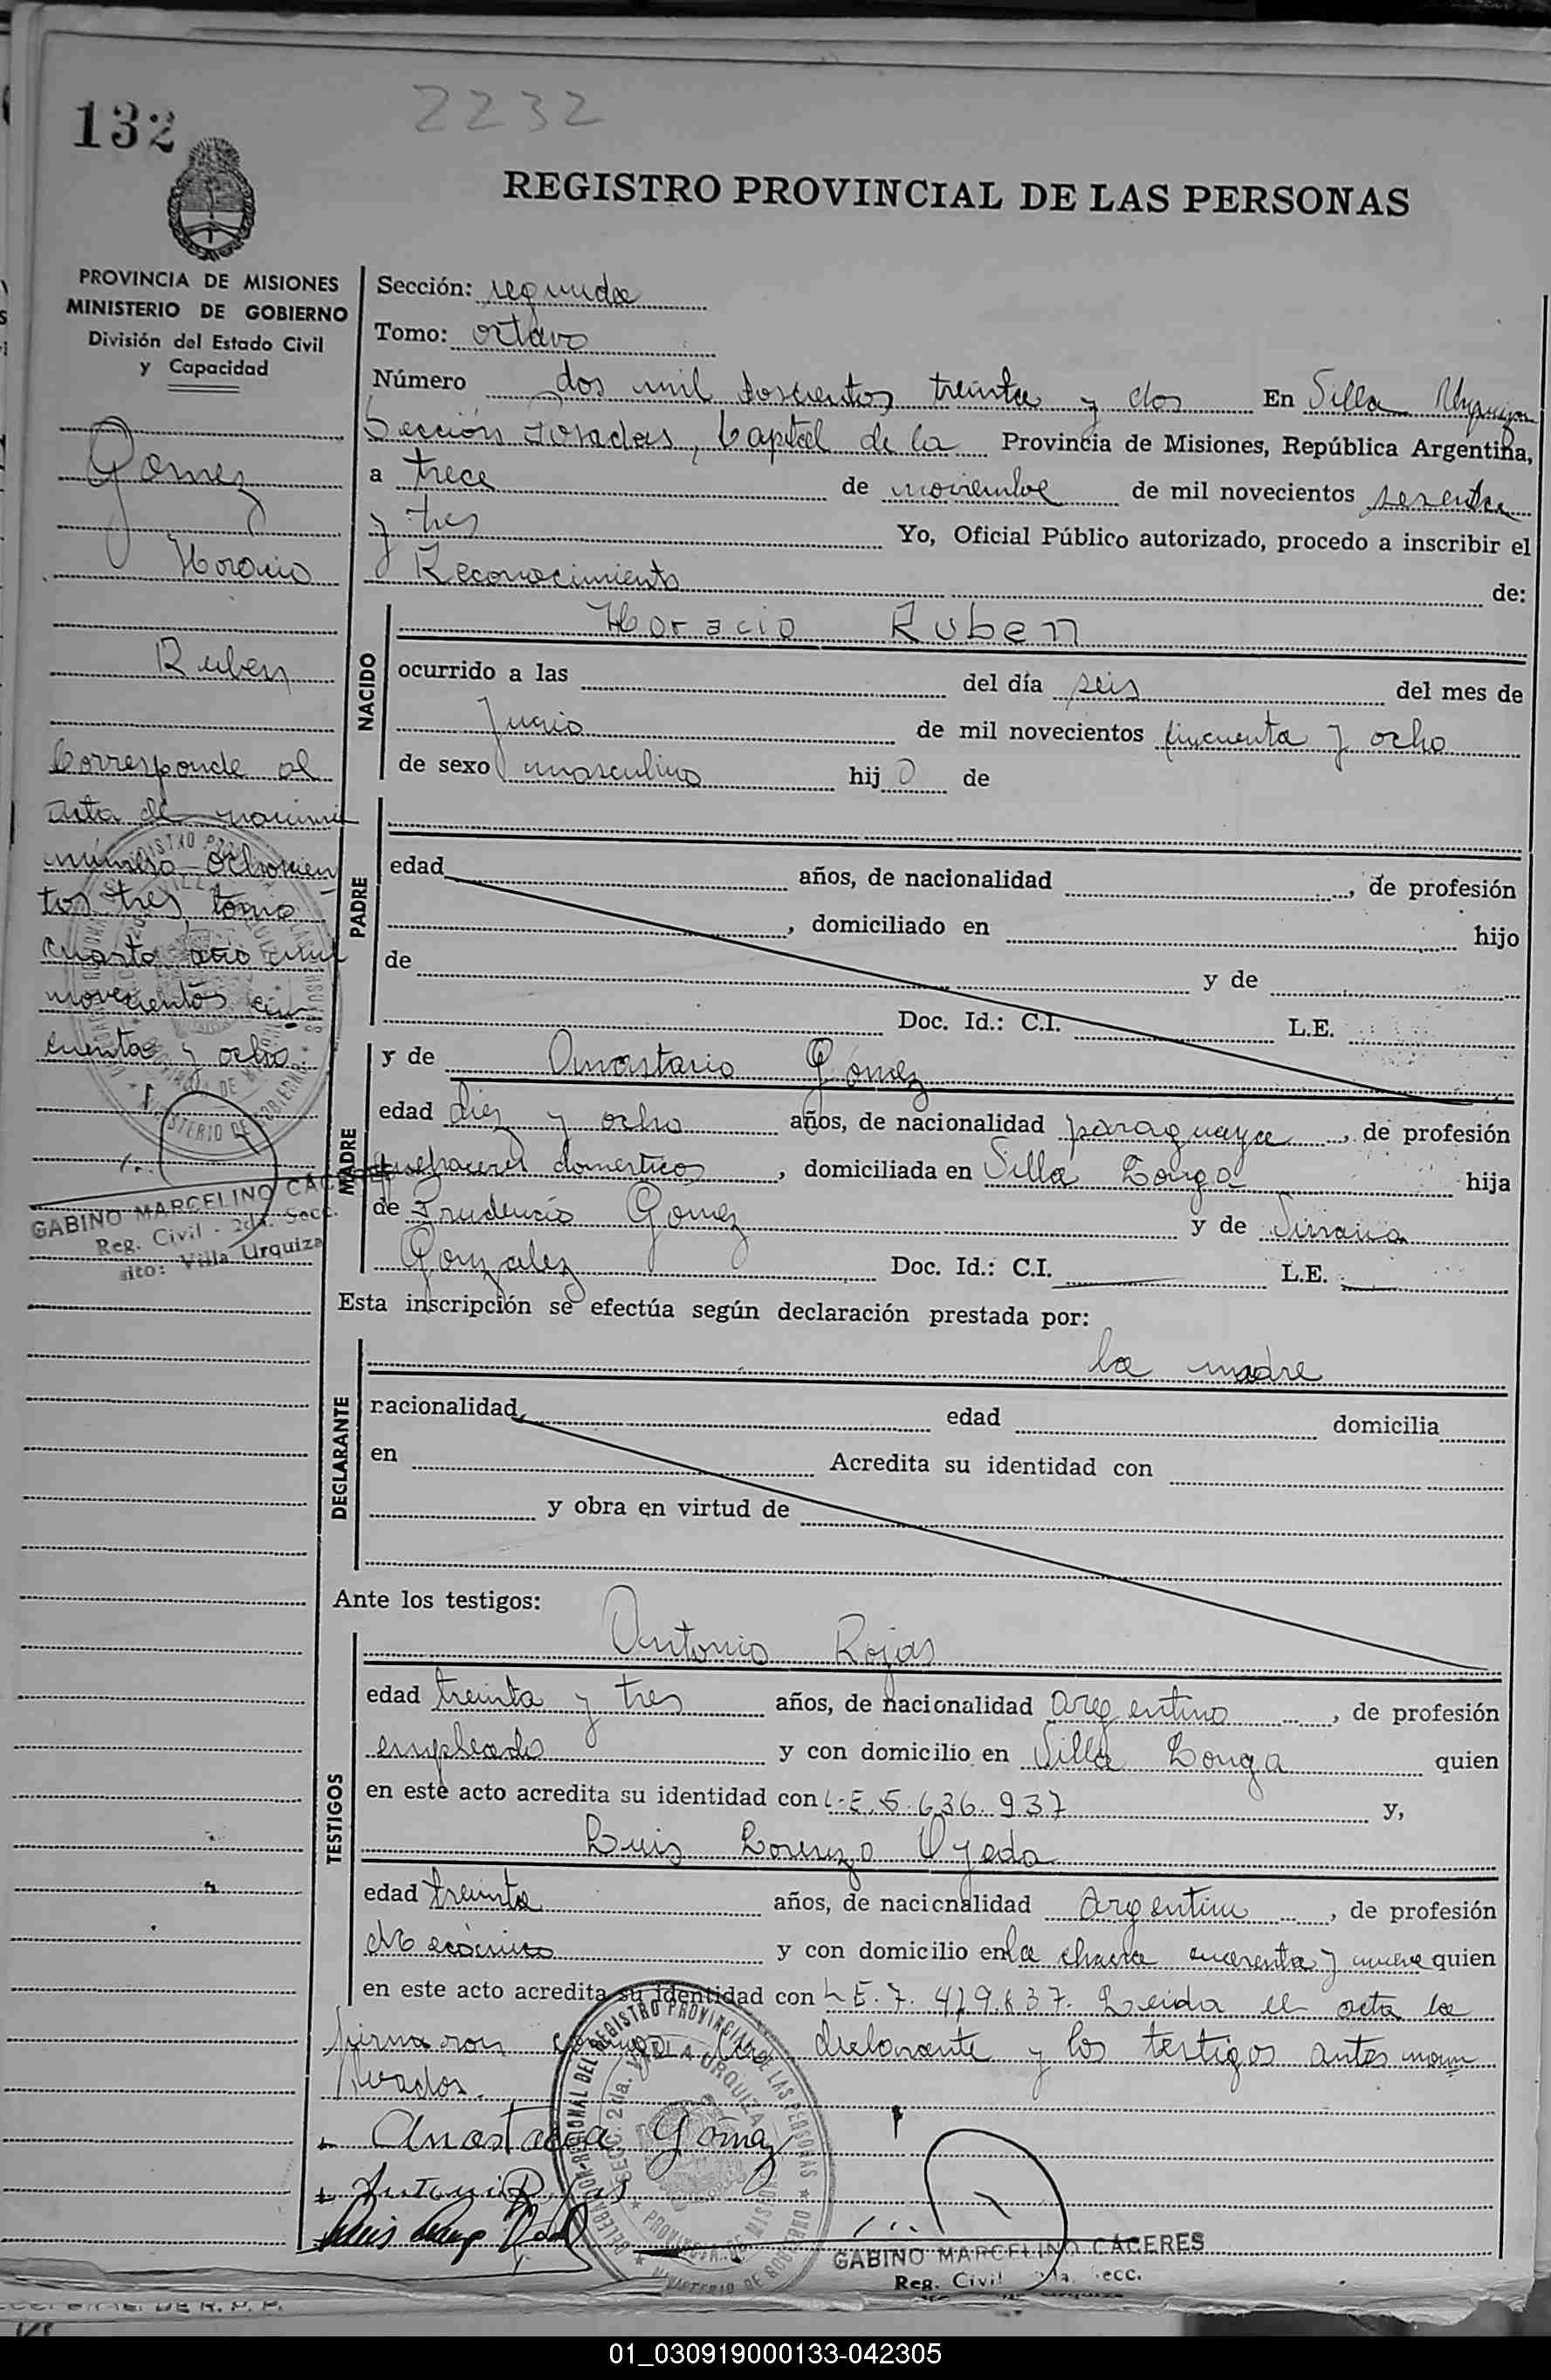 132
2232
REGISTRO PROVINCIAL DE LAS PERSONAS
PROVINCIA DE MISIONES
MINISTERIO DE GOBIERNO
División del Estado Civil
y Capacidad
Gomez
Horacio
Ruben
Corresponde al
acta de nacimi
número ochocien
tos tres, tomo
cuarto, año mil
novecientos cin
cuenta y ocho.
GABINO MARCELINO CACERES
Reg. Civil - 2da. Secc.
Villa Urquiza
Sección: segunda
Tomo: octavo
Número dos mil doscientos treinta y dos En Villa Urquiza
Sección Posadas, Capital de la Provincia de Misiones, República Argentina,
a trece de noviembre de mil novecientos sesenta
y tres Yo, Oficial Público autorizado, procedo a inscribir el
Reconocimiento de:
NACIDO
Horacio Ruben
ocurrido a las del día seis del mes de
Junio de mil novecientos cincuenta y ocho
de sexo masculino hijo de
PADRE
edad años, de nacionalidad , de profesión
, domiciliado en hijo
de y de
Doc. Id.: C.I. L.E.
MADRE
y de Anastacia Gomez
edad diez y ocho años, de nacionalidad paraguaya, de profesión
quehaceres domesticos, domiciliada en Villa Longa hija
de Prudencio Gomez y de
Gonzalez Doc. Id.: C.I. L.E.
Esta inscripción se efectúa según declaración prestada por:
la madre
DECLARANTE
nacionalidad, edad domicilia
en Acredita su identidad con
y obra en virtud de
Ante los testigos:
TESTIGOS
Antonio Rojas
edad treinta y tres años, de nacionalidad argentino, de profesión
empleado y con domicilio en Villa Longa quien
en este acto acredita su identidad con L.E. 5.636.937 y,
Luis Lorenzo Ojeda
edad treinta años, de nacionalidad Argentino, de profesión
Mecánico y con domicilio en la chacra cuarenta y nueve quien
en este acto acredita su identidad con L E. 7.419.637. Leida el acta la
firmaron la declarante y los testigos antes
Anastacia Gómez
GABINO MARCELINO CACERES
Reg. Civil 2da. Secc.
01_030919000133-042305